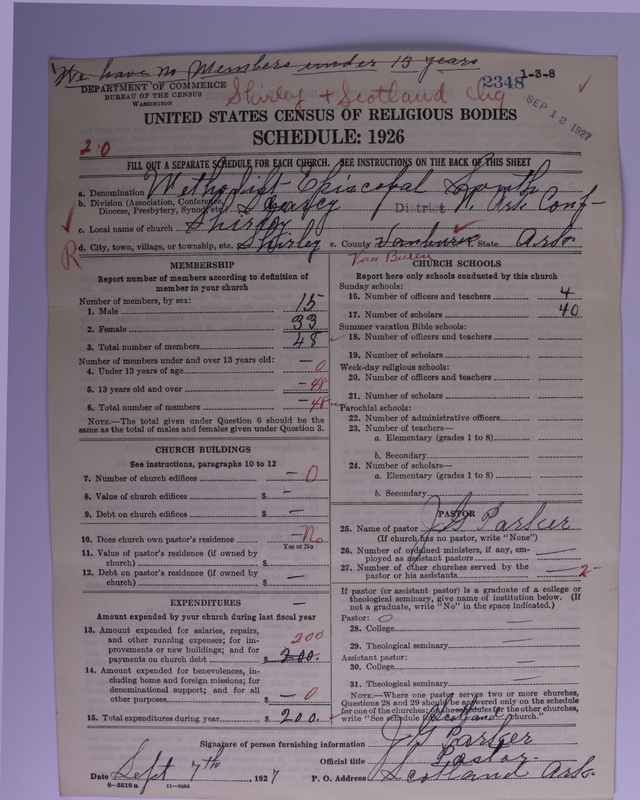 We have no Members under 13 years
1-3-8
DEPARTMENT OF COMMERCE
BUREAU OF THE CENSUS
WASHINGTON
2348
Shirley + Scotland Chg
SEP 12 1927
UNITED STATES CENSUS OF RELIGIOUS BODIES
SCHEDULE: 1926
20
FILL OUT A SEPARATE SCHEDULE FOR EACH CHURCH. SEE INSTRUCTIONS ON THE BACK OF THIS SHEET
a. Denomination Methodist Episcopal South
b. Division (Association, Conference, Diocese, Presbytery, Synod, etc.) Searcy District N. Ark Conf-
c. Local name of church Shirley
R
d. City, town, village, or township, etc. Shirley e. County Vanburen State Ark.
Van Buren
MEMBERSHIP
Report number of members according to definition of
member in your church
Number of members, by sex:
1. Male 15
2. Female 33
3. Total number of members 48
Number of members under and over 13 years old:
4. Under 13 years of age 0
5. 13 years old and over - 48
6. Total number of members - 48
NOTE.—The total given under Question 6 should be
same as the total of males and females given under Question 3.
CHURCH BUILDINGS
See instructions, paragraphs 10 to 12
7. Number of church edifices - 0
8. Value of church edifices $ -
9. Debt on church edifices $ -
10. Does church own pastor's residence - No
Yes or No
11. Value of pastor's residence (if owned by
church) $
12. Debt on pastor's residence (if owned by
church) $ -
EXPENDITURES -
Amount expended by your church during last fiscal year
13. Amount expended for salaries, repairs,
and other running expenses; for im-
provements or new buildings; and for
payments on church debt $ 200.
200
14. Amount expended for benevolences, in-
cluding home and foreign missions; for
denominational support; and for all
other purposes $ - 0
15. Total expenditures during year $ 200.
CHURCH SCHOOLS
Report here only schools conducted by this church
Sunday schools:
16. Number of officers and teachers 4
17. Number of scholars 40
Summer vacation Bible schools:
18. Number of officers and teachers
19. Number of scholars
Week-day religious schools:
20. Number of officers and teachers
21. Number of scholars
Parochial schools:
22. Number of administrative officers
23. Number of teachers—
a. Elementary (grades 1 to 8)
b. Secondary
24. Number of scholars—
a. Elementary (grades 1 to 8)
b. Secondary
PASTOR
25. Name of pastor J G Parker
(If church has no pastor, write "None")
26. Number of ordained ministers, if any, em-
ployed as assistant pastors
27. Number of other churches served by the
pastor or his assistants 2-
If pastor (or assistant pastor) is a graduate of a college or
theological seminary, give name of institution below. (If
not a graduate, write "No" in the space indicated.)
Pastor: 0
28. College
29. Theological seminary
Assistant pastor:
30. College
31. Theological seminary
NOTE.—Where one pastor serves two or more churches,
Questions 28 and 29 should be answered only on the schedule
for one of the churches; on the schedules for the other churches,
write "See schedule Scotland church."
Signature of person furnishing information J G Parker
Official title Pastor
Date Sept 7th, 1927 P. O. Address Scotland Ark.
8-5518a 11-9034